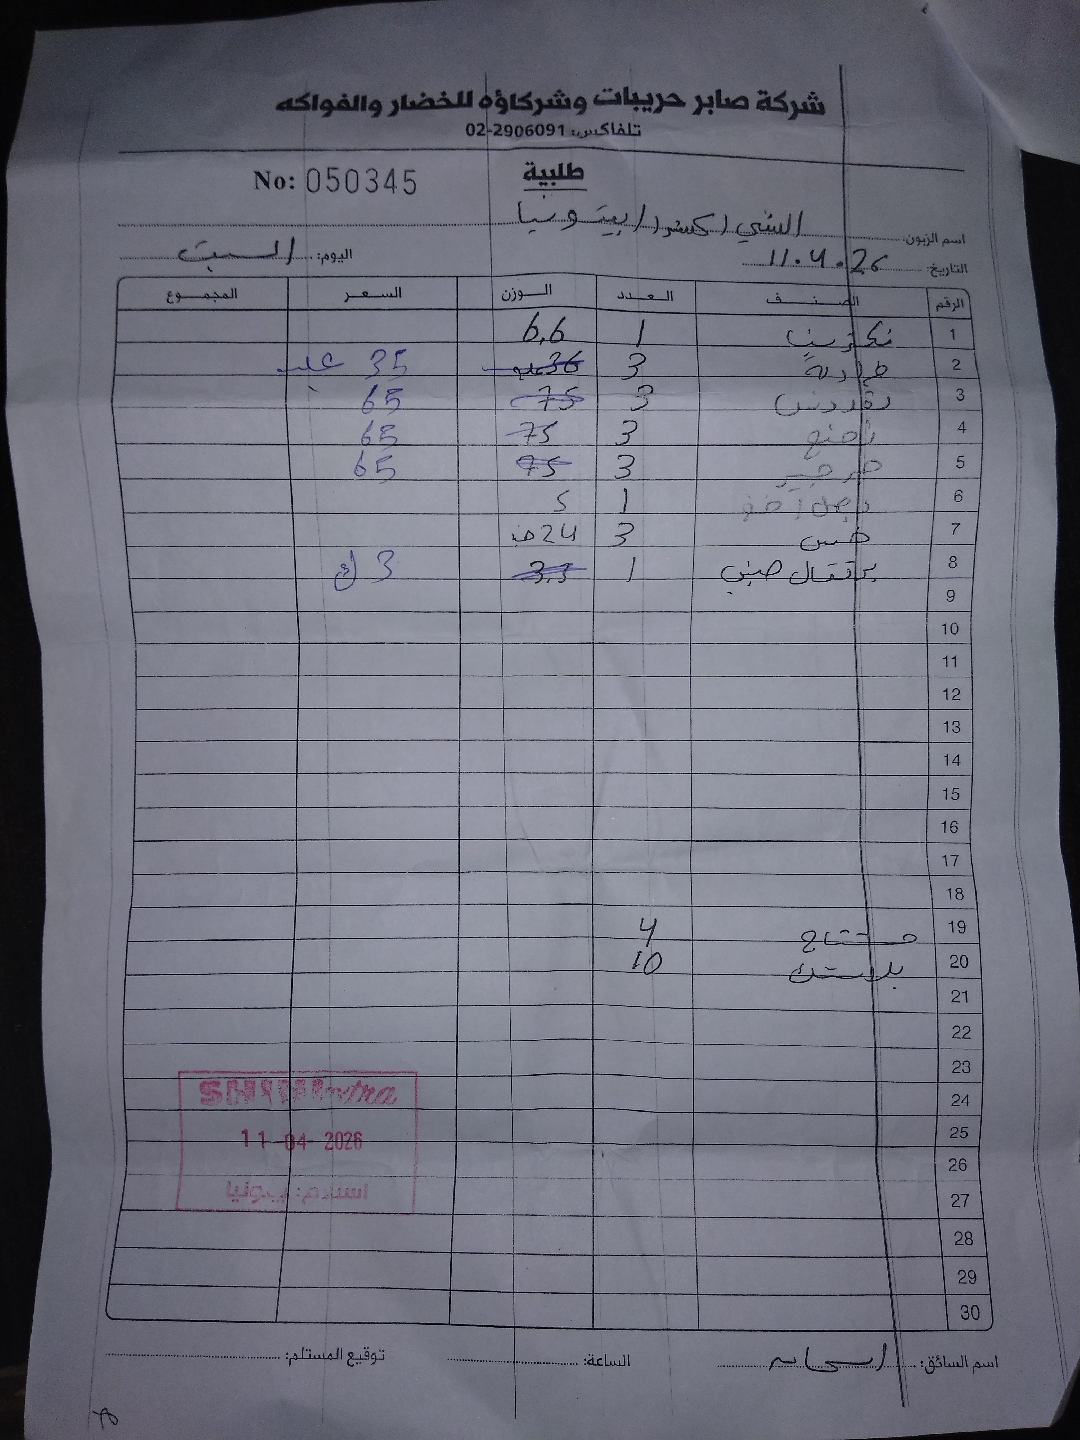 شركة صابر حريبات وشركاؤه للخضار والفواكه
تلفاكس: 02-2906091
طلبية
No: 050345
اسم الزبون: الشني اكسترا / بيتونيا
التاريخ: 11.4.26 اليوم: السبت
الرقم الصنف العدد الوزن السعر المجموع
1 نكترينا 1 6,6
2 3 36 علبه 35 علب
3 بقدونس 3 75 65
4 نعنع 3 75 65
5 جرجير 3 75 65
6 1 5
7 خس 3 24
8 برتقال صيني 1 3,3 3 ك
9
10
11
12
13
14
15
16
17
18
19 مشتاح 4
20 بلاستك 10
21
22
23
24
25
26
27
28
29
30
11-04-2026
استلام: بيتونيا
اسم السائق: الساعة: توقيع المستلم: